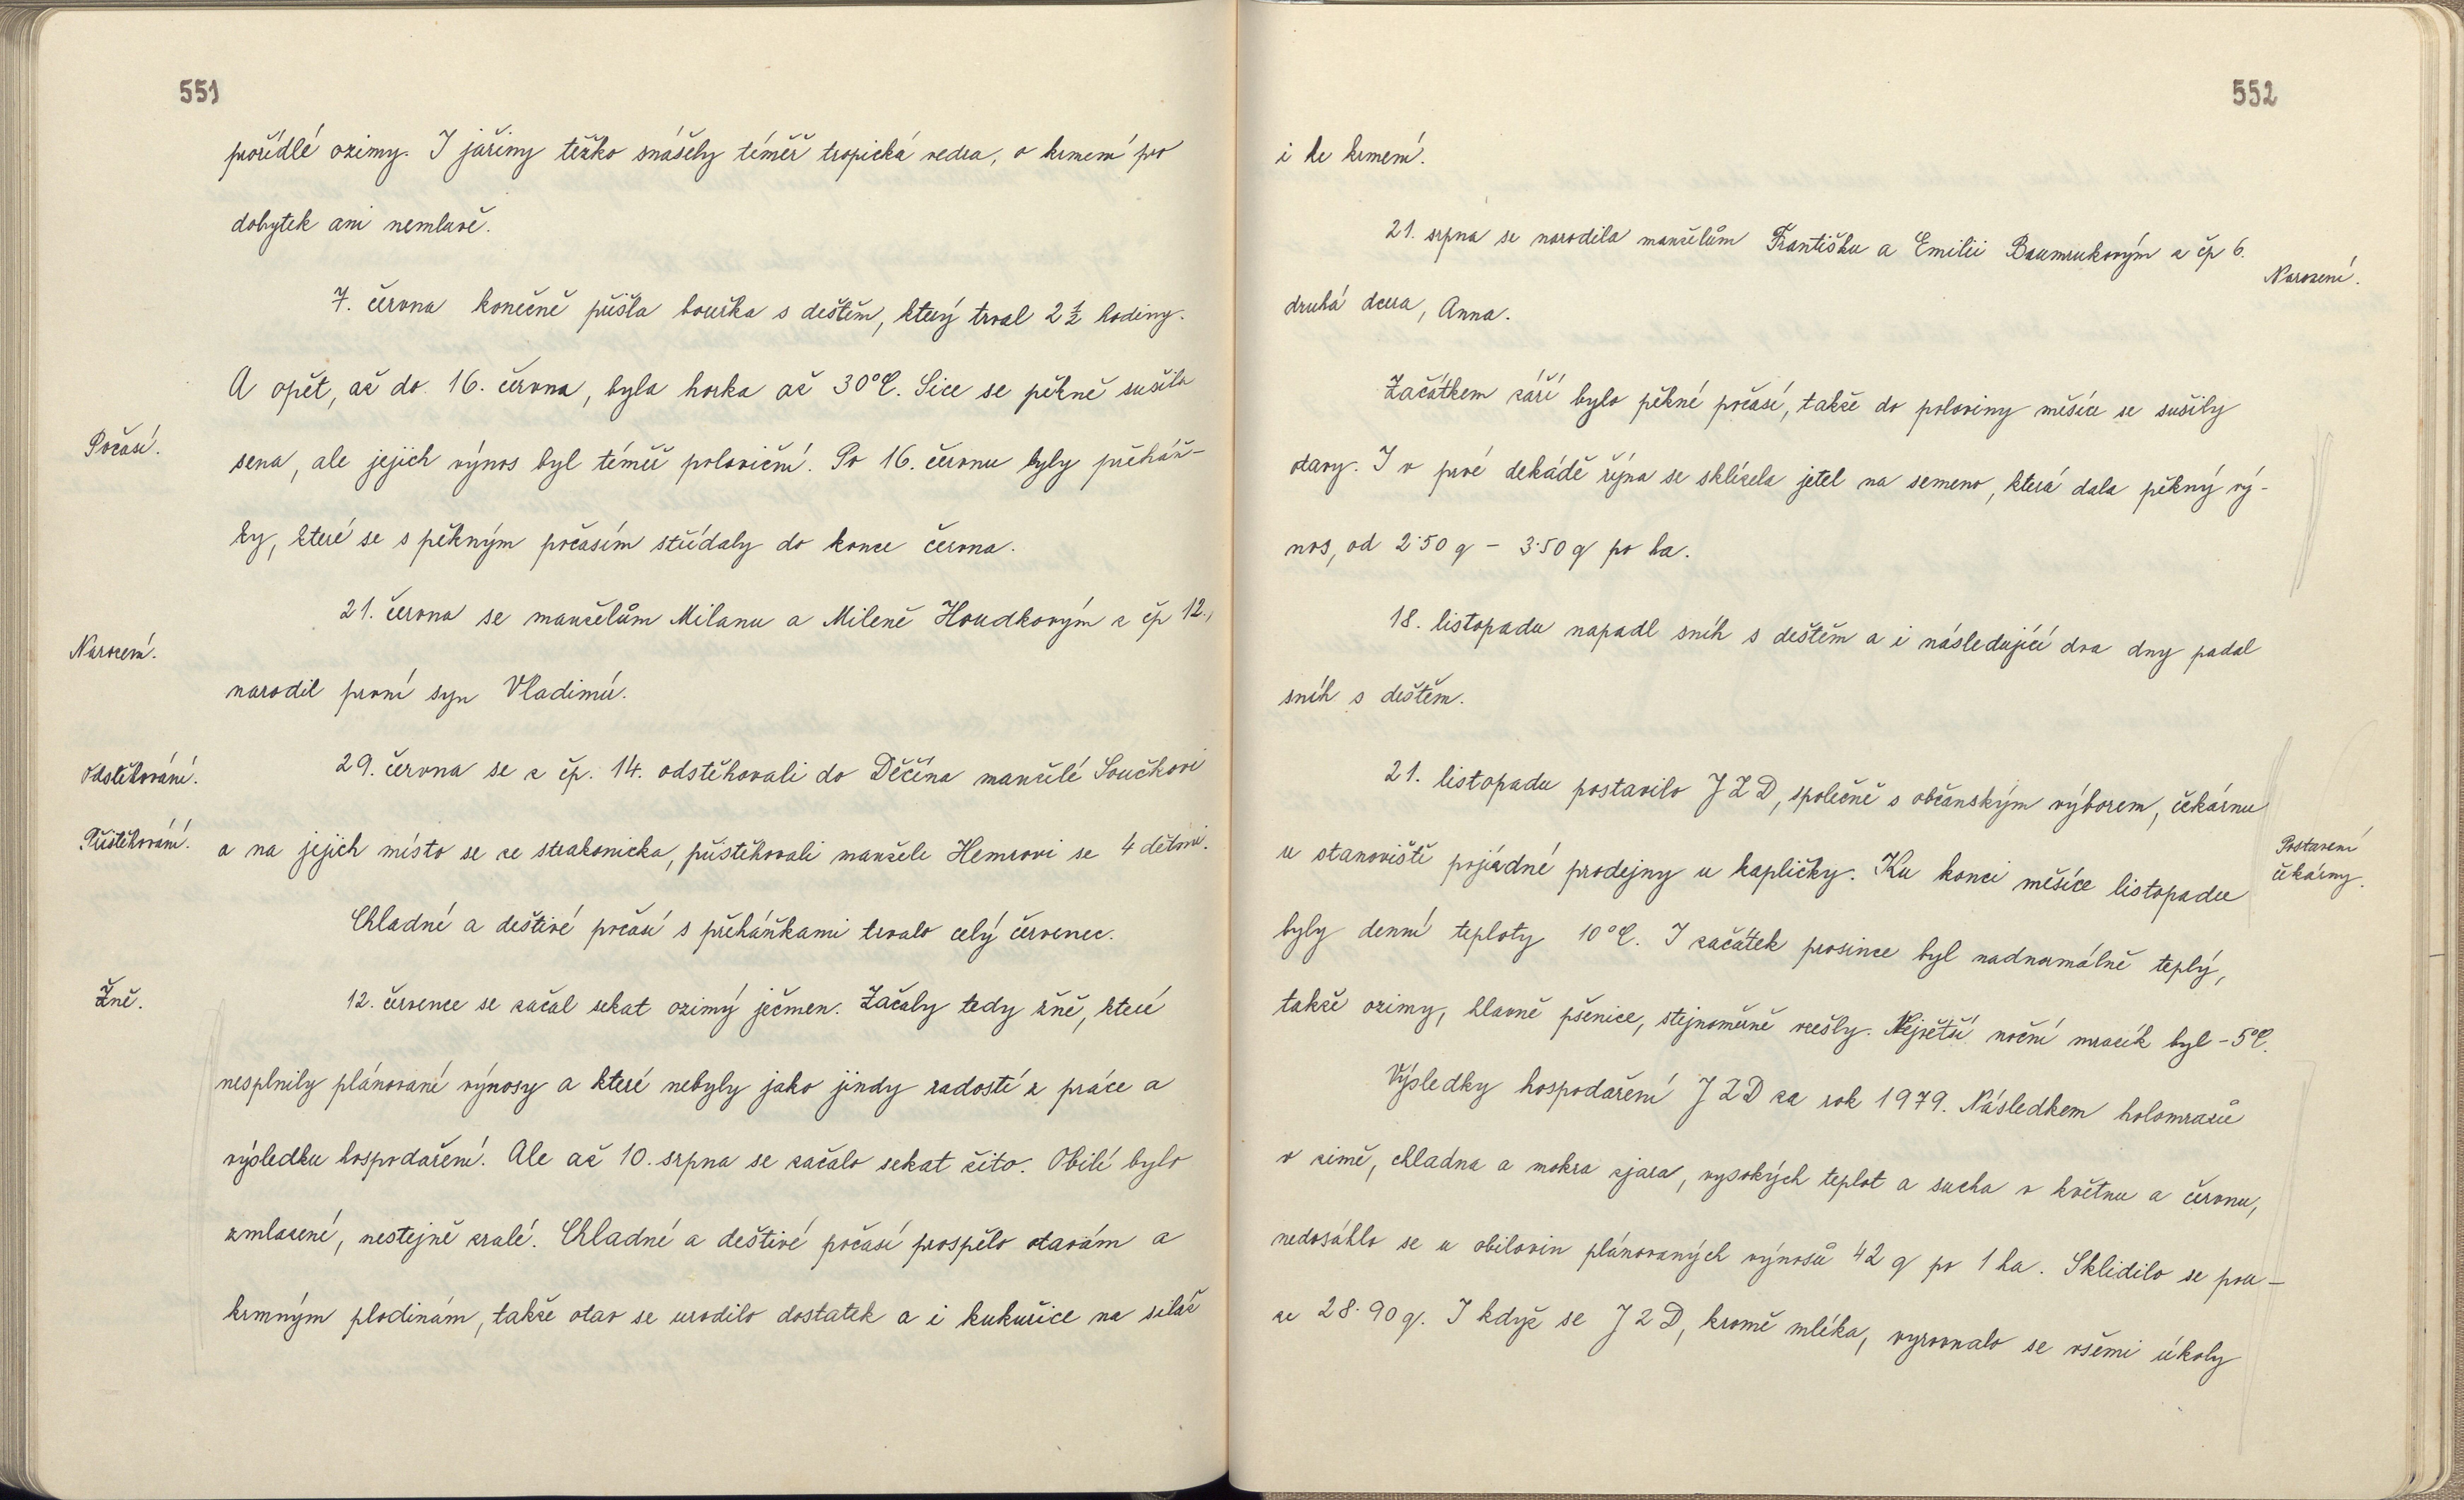 551
prořídlé ozimy. I jařiny těžko snášely téměř tropická vedra, o krmení pro
dobytek ani nemluvě.
7. června konečně přišla bouřka s deštěm, který trval 2 1/2 hodiny.
A opět, až do 16. června, byla horka až 30°C. Sice se pěkně sušila
Počasí.
sena, ale jejich výnos byl téměř poloviční. Po 16. červnu byly přeháň-
ky, které se s pěkným počasím střídaly do konce června.
21. června se manželům Milanu a Mileně Houdkovým z čp 12.,
Narození.
narodil první syn Vladimír.
Odstěhování.
29. června se z čp. 14. odstěhovali do Děčína manželé Součkovi
Přistěhování.
a na jejich místo se ze strakonicka, přistěhovali manželé Hemrovi se 4 dětmi.
Chladné a deštivé počasí s přeháňkami trvalo celý červenec.
Žně.
12. července se začal sekat ozimý ječmen. Začaly tedy žně, které
nesplnily plánované výnosy a které nebyly jako jindy radostí z práce a
výsledku hospodaření. Ale až 10. srpna se začalo sekat žito. Obilí bylo
zmlazené, nestejně zralé. Chladné a deštivé počasí prospělo otavám a
krmným plodinám, takže otav se urodilo dostatek a i kukuřice na siláž
552
i ke krmení.
21. srpna se narodila manželům Františku a Emilii Baumrukovým z čp 6.
Narození.
druhá dcera, Anna.
Začátkem září bylo pěkné počasí, takže do poloviny měsíce se sušily
otavy. I v prvé dekádě října se sklízela jetel na semeno, která dala pěkný vý-
nos, od 2·50 q - 3·50 q po ha.
18. listopadu napadl sníh s deštěm a i následující dva dny padal
sníh s deštěm.
21. listopadu postavilo JZD, společně s občanským výborem, čekárnu
u stanoviště pojízdné prodejny u kapličky. Ku konci měsíce listopadu
Postavení
čekárny.
byly denní teploty 10°C. I začátek prosince byl nadnormálně teplý,
takže ozimy, hlavně pšenice, stejnoměrně vzešly. Největší noční mrazík byl -5°C.
Výsledky hospodaření JZD za rok 1979. Následkem holomrazů
v zimě, chladna a mokra zjara, vysokých teplot a sucha v květnu a červnu,
nedosáhlo se u obilovin plánovaných výnosů 42 q po 1 ha. Sklidilo se pou-
ze 28·90 q. I když se JZD, kromě mléka, vyrovnalo se všemi úkoly